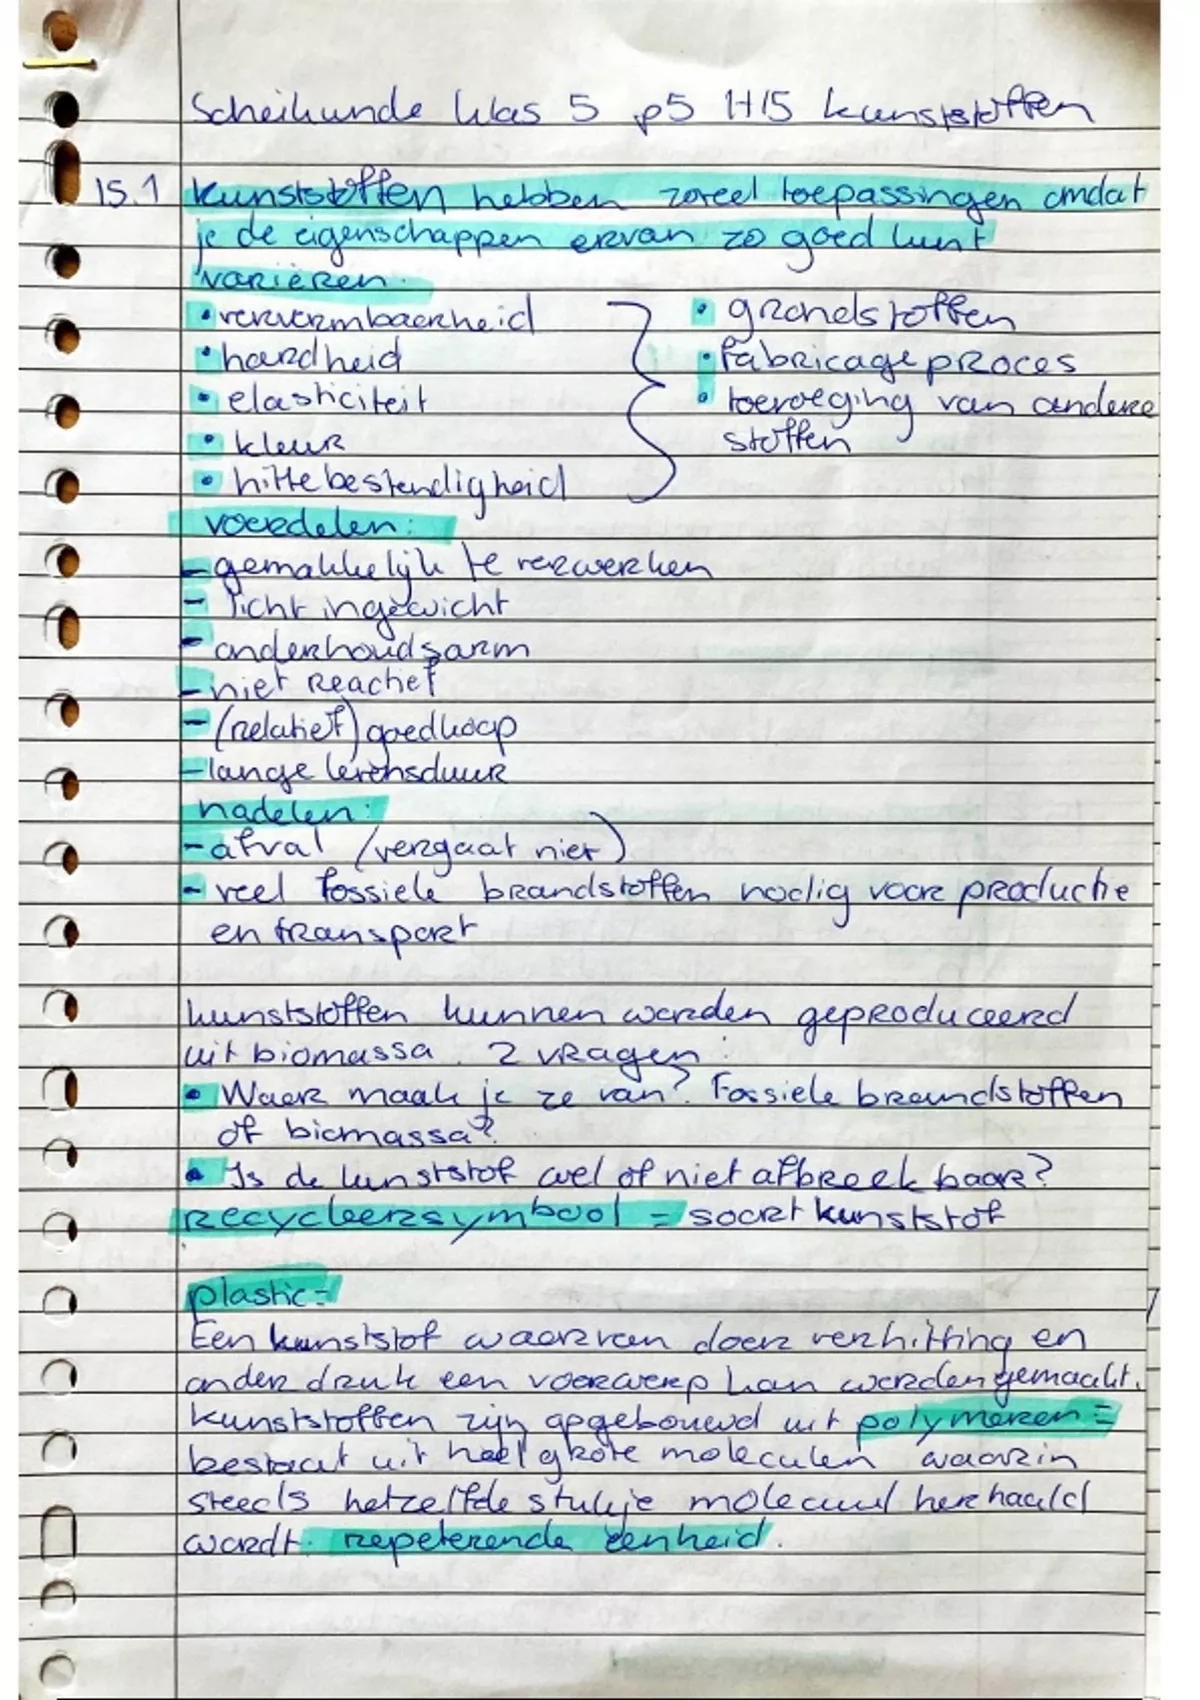 Scheikunde klas 5 p5 H15 kunststoffen
15.1 kunststoffen hebben zoveel toepassingen omdat
je de eigenschappen ervan zo goed kunt
variëren.
• vervormbaarheid
• hardheid
• elasticiteit
• kleur
• hittebestendigheid
• grondstoffen
• fabricageproces
• toevoeging van andere
stoffen
voordelen:
- gemakkelijk te verwerken
- licht in gewicht
- onderhoudsarm
- niet reactief
- (relatief) goedkoop
- lange levensduur
nadelen:
- afval (vergaat niet)
- veel fossiele brandstoffen nodig voor productie
en transport
kunststoffen kunnen worden geproduceerd
uit biomassa. 2 vragen:
• Waar maak je ze van? Fossiele brandstoffen
of biomassa?
• Is de kunststof wel of niet afbreekbaar?
Recycleersymbool = soort kunststof
plastic =
Een kunststof waarvan door verhitting en
onder druk een voorwerp kan worden gemaakt.
kunststoffen zijn opgebouwd uit polymeren =
bestaat uit heel grote moleculen waarin
steeds hetzelfde stukje molecuul herhaald
wordt. repeterende eenheid.